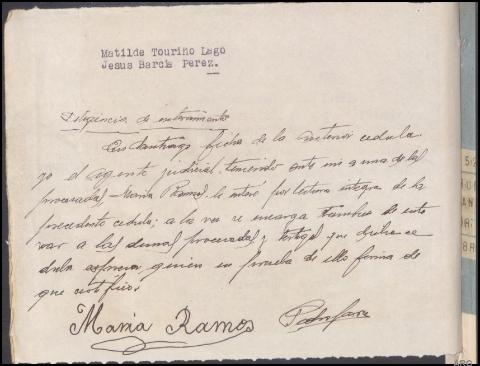 Matilde Touriño Lago
Jesus Barcia Perez.
Diligencia de enteramiento
En Santiago fecha de la anterior cedula
yo el agente judicial teniendo ante mi a una de las
procesadas Maria Ramos le enteré por lectura integra de la
precedente cedula; a la vez se encarga tambien de ente
rar a las demas procesadas y testigos que dicha ce
dula expresa, quien en prueba de ello firma de
que certifico.
Maria Ramos